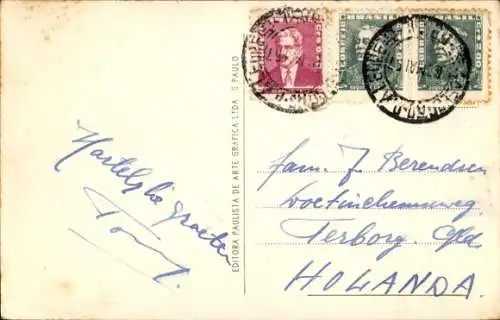 BRASIL CORREIO
BRASIL CORREIO
EDITORA PAULISTA DE ARTE GRAFICA LTDA. S PAULO
Hartelijke groeten
Tony.
fam. J Berendsen
Doetinchemseweg
Terborg. Gld
HOLANDA.